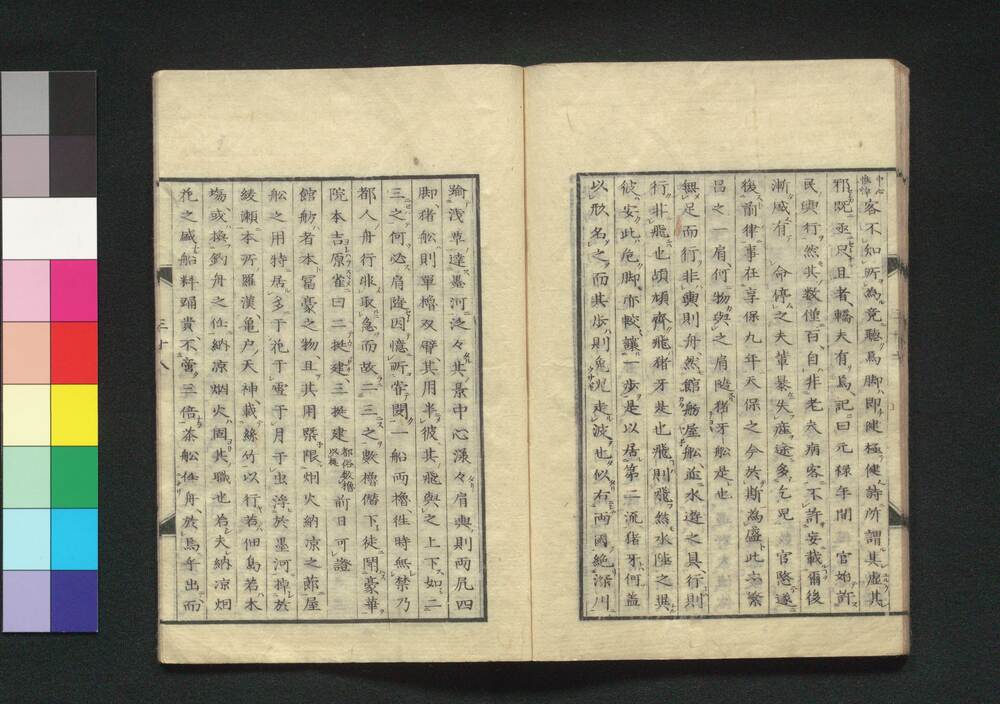 客不知所為竟聽焉脚即健極健詩所謂其虛其
邪既亟只且者轎夫有焉記曰元祿年間 官始許
民輿行然其數僅百自非老衣病客不許妄載爾後
漸盛有 命停之夫輩棊失産途多乞児 官降遂
後前律事在享保九年天保之今於斯為盛此亦繁
昌之一肩何物與之肩隨猪牙舩是也
無足而行非輿則舟然館舫屋舩並水遊之具行則
行非飛也頡頏齊飛猪牙是也飛則飛然水陸之異
彼安此危脚亦較讓一歩是以居第二流猪牙何盖
以形名之而其歩則鬼児走波也似有両國絶深川
踰浅草達墨河泛々其景中心漾々肩輿則両尻四
脚猪舩則單櫓双臂其用半彼其飛與之上下如二
三之何必肩隨因憶所嘗聞一船両櫓徃時無禁乃
都人舟行非取急而故二三之數櫓俻下徒鬧豪華
院本吉原雀曰二挺建三挺建都俗數櫓以挺前日可證
館舫者本冨豪之物且其用㮣限烟火納凉之節屋
舩之用特居多于花于雪于月于虫浮於墨河掉於
綾瀬本所羅漢亀户天神載絲竹以行若佃島若木
塲或換釣舟之任納凉烟火固其職也若夫納凉烟
花之盛船料踊貴不啻三倍茶舩任舟於焉乎出而
三十八